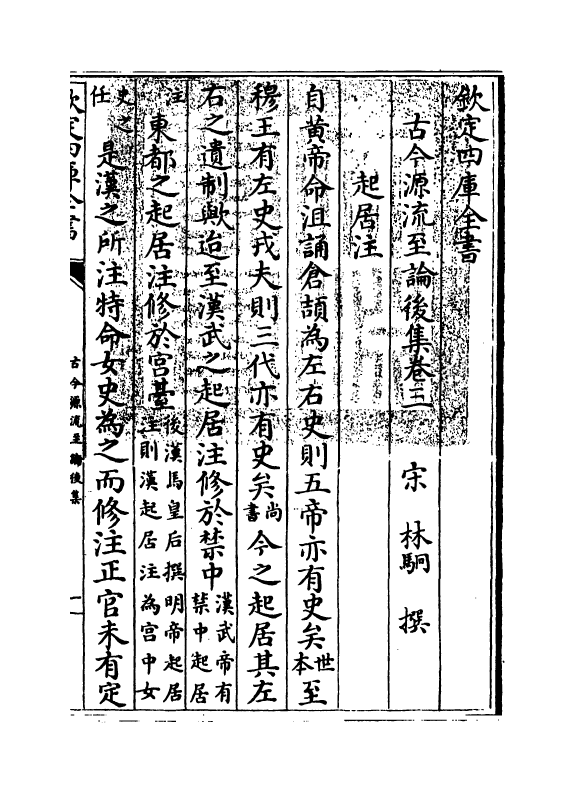 欽定四庫全書
古今源流至論後集卷三　宋　林駉　撰
起居注
自黄帝命沮誦倉頡為左右史則五帝亦有史矣世本至
穆王有左史戎夫則三代亦有史矣尚書今之起居其左
右之遺制歟迨至漢武之起居注修於禁中漢武帝有禁中起居
注東都之起居注修於宫臺後漢馬皇后撰明帝起居注則漢起居注為宫中女
史之任是漢之所注特命女史為之而修注正官未有定
欽定四庫全書
古今源流至論後集
一